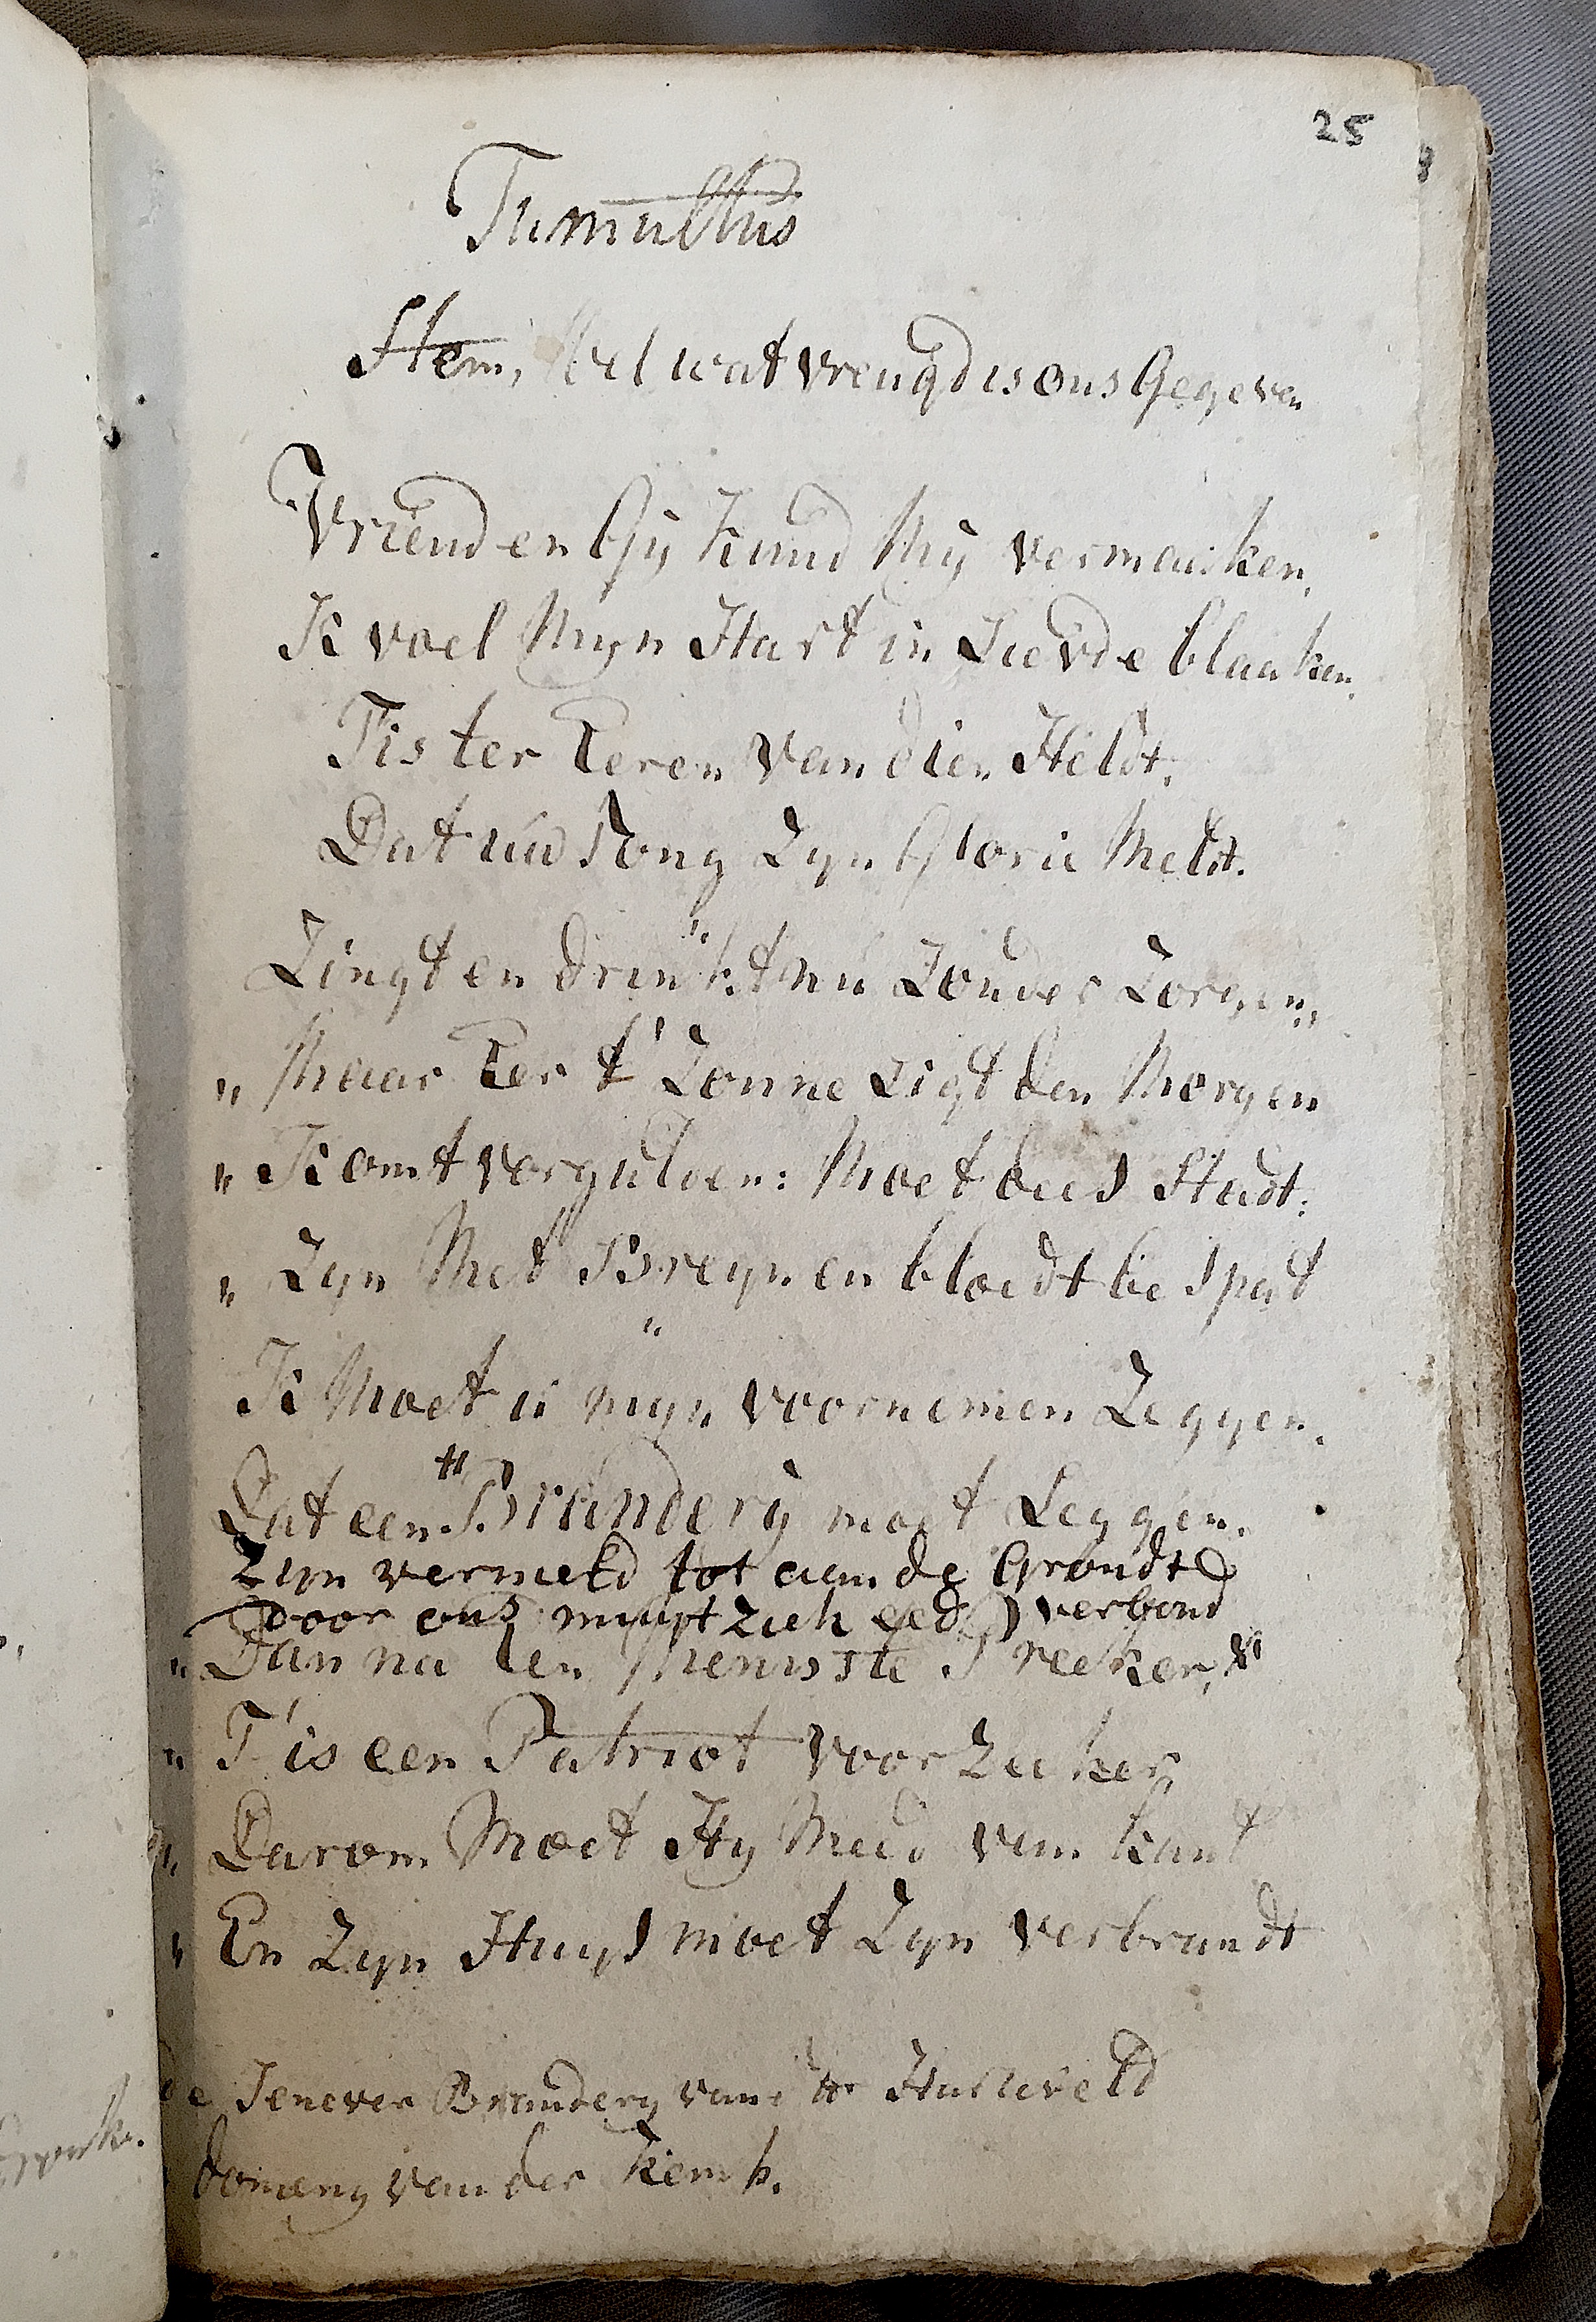 25
Tumultus
Stem, Wel wat vreugd is ons Gegeven
Vrienden Gÿ Kund Mÿ vermaaken,
Ik voel Myn Hart in Liefde blaaken,
Tis ter Eeren van dien Heldt,
Dat uw Tong Zyn Glorie Meldt.
Zingt en drinkt nu Zonder Zorgen,
" Maar Eer t' Zonne Ligt den Morgen
" Komt vergulden: Moet dees Stadt:
" Zyn Met Breyn en bloedt be Spat
Ik Moet u myn voornemen Zeggen.
Dat een # Brandery moet Leggen.
Zyn vernield tot aan de Grondt
Door ons muyt zich verbond
" Dan na den Menniste Preeker,
" T'is een Patriot voor Zeeker
" Darom Moet Hy Meed van kant
" En Zyn Huys moet Zyn verbrandt
de Jenever Brandery van
domeny van der Kemp.